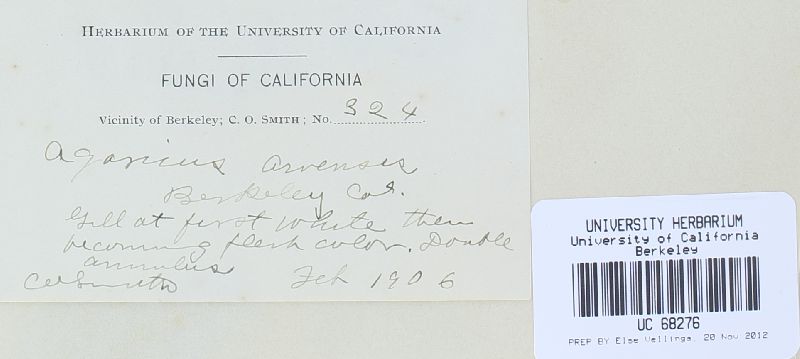 HERBARIUM OF THE UNIVERSITY OF CALIFORNIA
FUNGI OF CALIFORNIA
Vicinity of Berkeley; C. O. SMITH; No. 324
Agaricus arvensis
Berkeley Cal.
Gill at first white then
becoming flesh color. Double
annulus
COSmith Feb 1906
UNIVERSITY HERBARIUM
University of California
Berkeley
UC 68276
PREP BY Else Vellinga, 20 Nov 2012